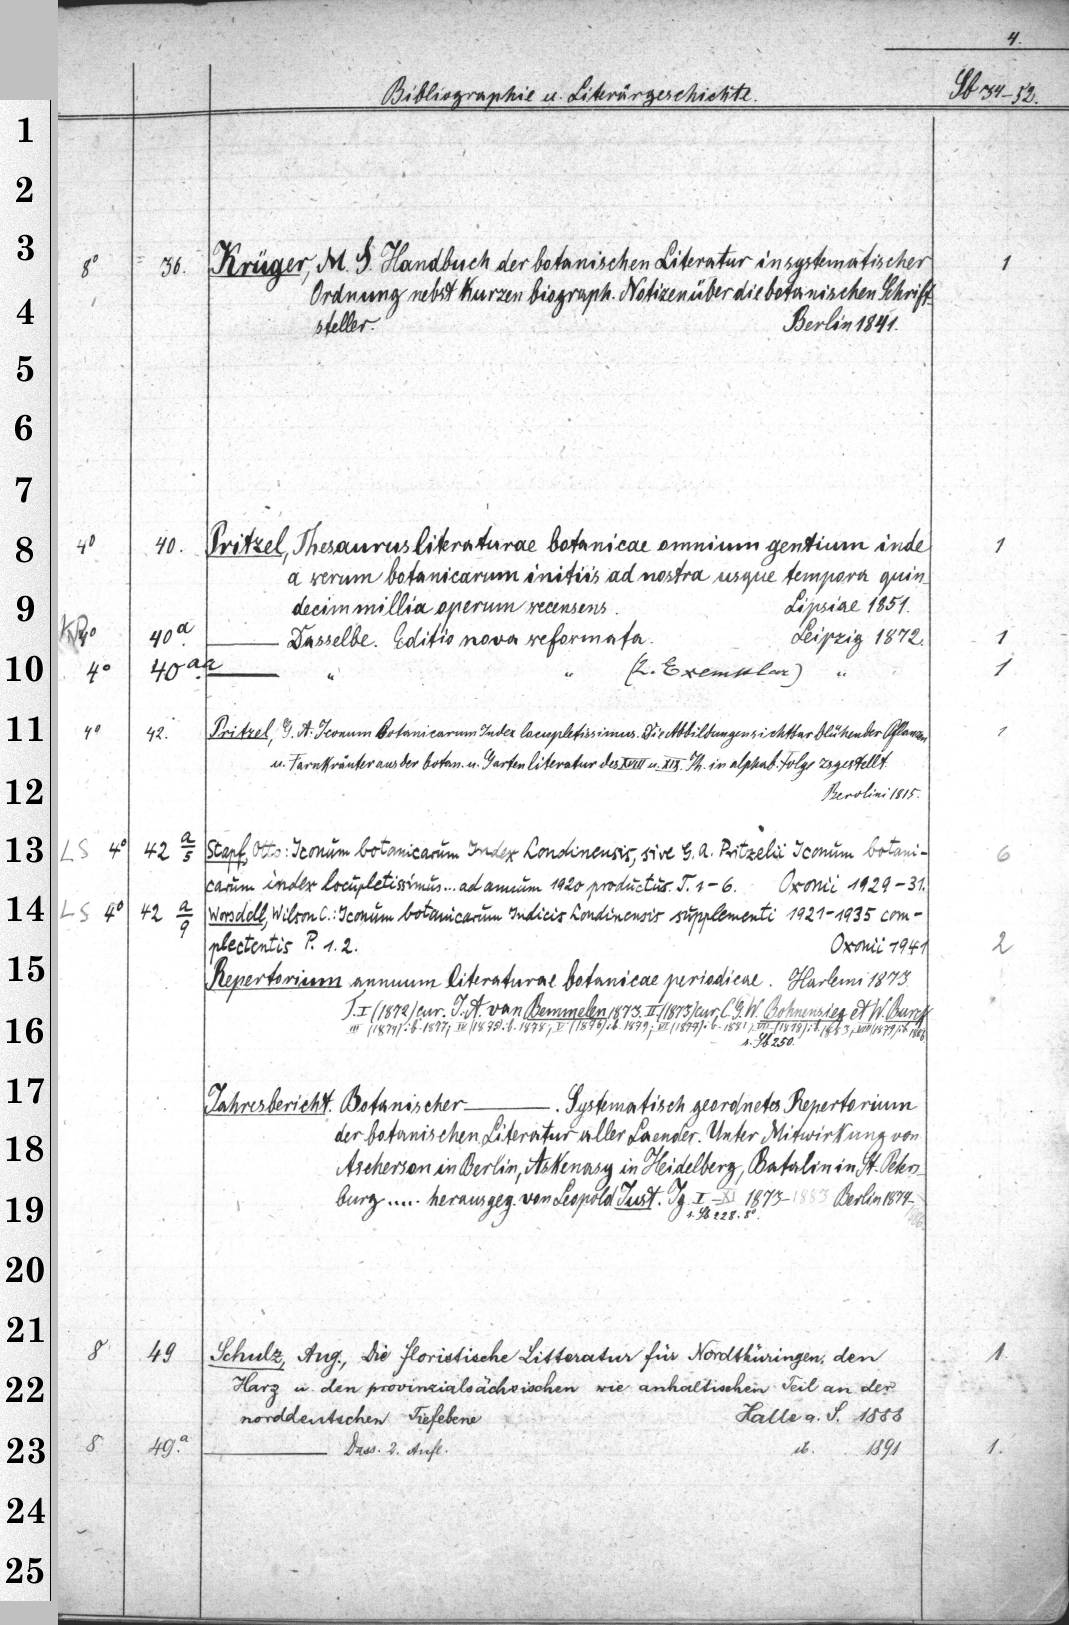 4.
Bibliographie u. Literärgeschichte. Sb 34-52.
1
2
3
8° 36. Krüger, M. S. Handbuch der botanischen Literatur in systematischer 1
Ordnung nebst kurzen biograph. Notizen über die botanischen Schrift-
4
steller. Berlin 1841.
5
6
7
8
4° 40. Pritzel, Thesaurus literaturae botanicae omnium gentium inde 1
a rerum botanicarum initiis ad nostra usque tempora quin-
9
decim millia operum recensens. Lipsiae 1851.
4° 40a Dasselbe. Editio nova reformata. Leipzig 1872. 1
10
4° 40aa " " (2. Exemplar) " 1
11
4° 42. Pritzel, G. A. Iconum Botanicarum Index locupletissimus. Die Abbildungen sichtbar blühender Pflanzen 1
u. Farnkräuter aus der botan. u. Gartenliteratur des XVIII u. XIX. Jh. in alphab. Folge zsgestellt.
12
Berolini 1815.
13
LS 4° 42 a/5 Stapf, Otto: Iconum botanicarum Index Londinensis, sive G. A. Pritzelii Iconum botani- 6
carum index locupletissimus... ad annum 1920 productus. T. 1-6. Oxonii 1929-31.
14
LS 4° 42 a/9 Worsdell, Wilson C.: Iconum botanicarum Indicis Londinensis supplementi 1921-1935 com-
plectentis P. 1. 2. Oxonii 1941 2
15
Repertorium annuum literaturae botanicae periodicae. Harlemi 1873.
T. I (1872) cur. J. A. van Bemmelen 1873. II (1873) cur. C. G. W. Bohnensieg et W. Burck
16
III (1874) ib. 1877, IV (1875) ib. 1878, V (1876) ib. 1879, VI (1877) ib. 1881, VII (1878) ib. 1883, VIII (1879) ib. 1886
s. Sb 250.
17
Jahresbericht. Botanischer . Systematisch geordnetes Repertorium
der botanischen Literatur aller Laender. Unter Mitwirkung von
18
Ascherson in Berlin, Askenasy in Heidelberg, Batalin in St. Peters-
burg ..... herausgeg. von Leopold Just. Jg. I-XI 1873-1883 Berlin 1874-
19
s. Sb 228. 8°.
20
21
8 49 Schulz, Aug., Die floristische Litteratur für Nordthüringen, den 1.
22
Harz u. den provinzialsächsischen wie anhaltischen Teil an der
norddeutschen Tiefebene Halle a. S. 1888
23
8 49.a Dass. 2. Aufl. ib. 1891 1.
24
25